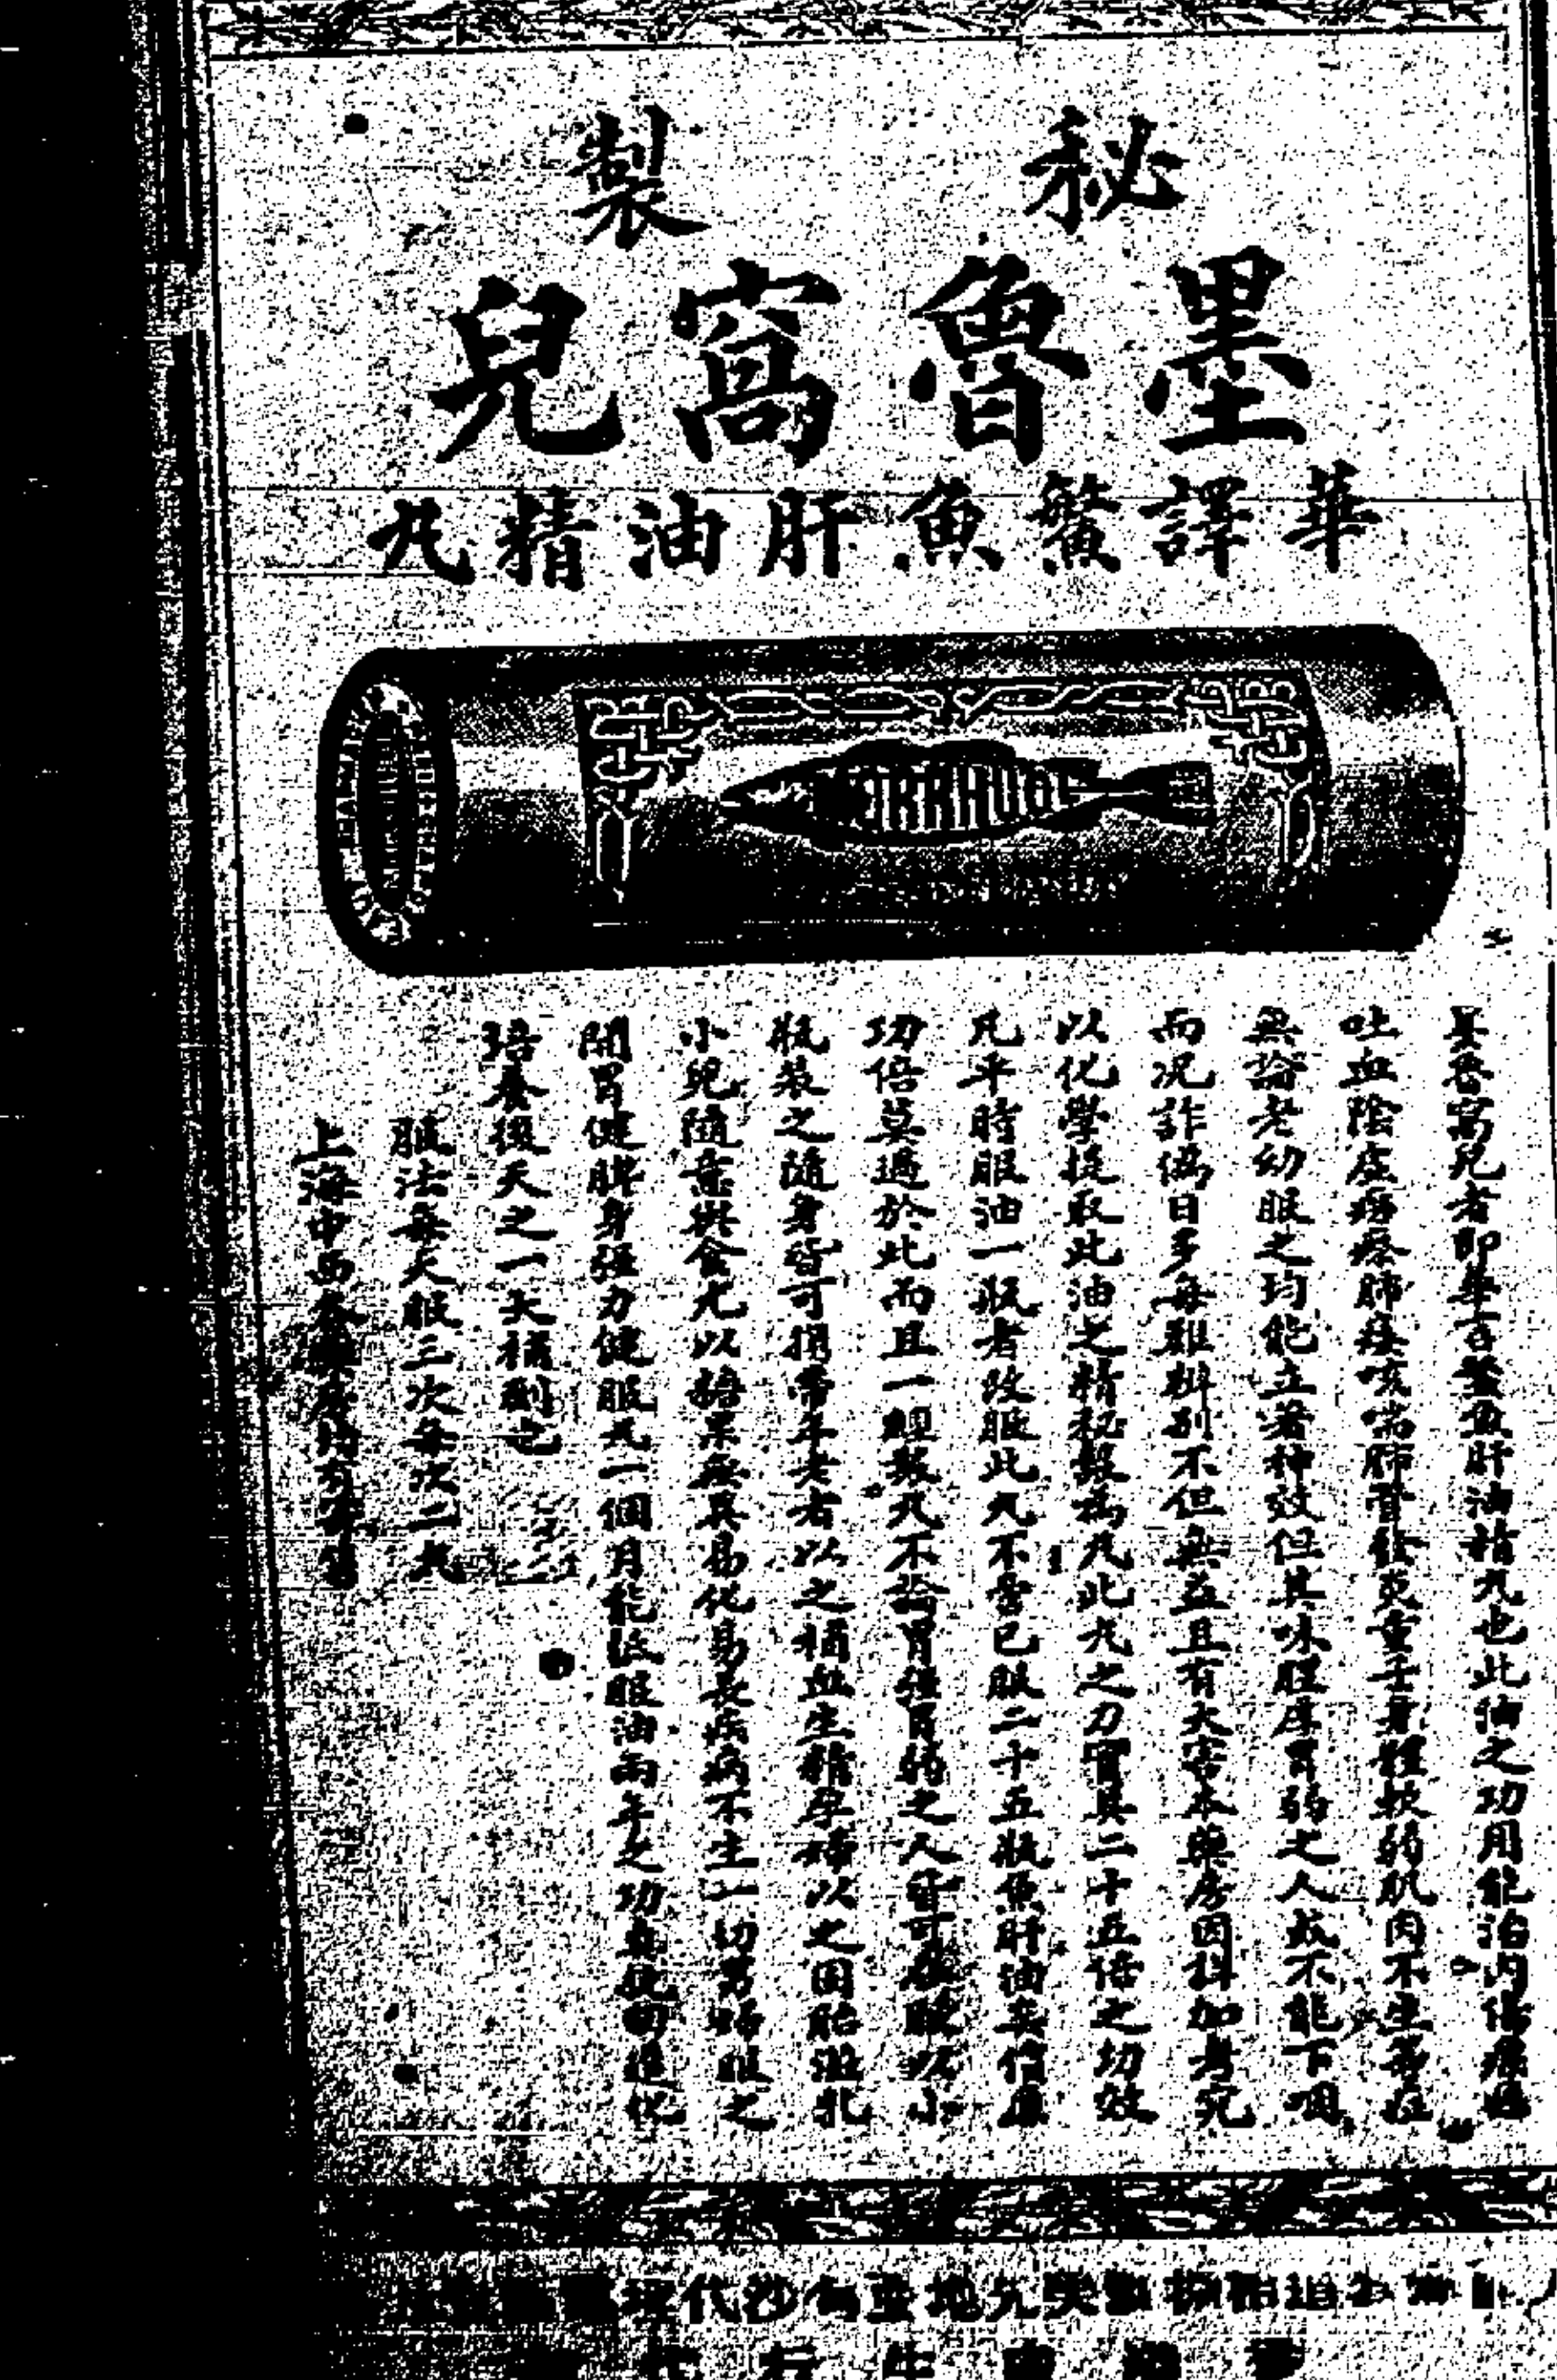 秘製
墨魯窩兒
華譯鱉魚肝油精丸
MORRHUOL
墨魯窩兒者即華言鱉魚肝油精丸也此油之功用能治內傷
吐血陰虛癆瘵肺痿咳喘肺管發炎童子身體軟弱肌肉不生等症
無論老幼服之均能立著神效但其味腥厚胃弱之人或不能下咽
而况詐偽日多每難辨别不但無益且有大害本藥房因抖加考究
以化學提取此油之精秘製為丸此丸之力實具二十五倍之功效
凡平時服油一瓶者改服此丸不啻已服二十五瓶魚肝油矣信
功倍莫過於此而且一經製丸不論胃強胃弱之人皆可服以小
瓶裝之隨身皆可攜帶年老者以之補血生精孕婦以之固胎滋乳
小兒隨意與食尤以糖果無異易化易長疾病不生一切男婦服之
開胃健脾身強力健服丸一個月能抵服油兩年之功
培養後天之一大補劑也
服法每天服三次每次二丸
上海中西大藥房